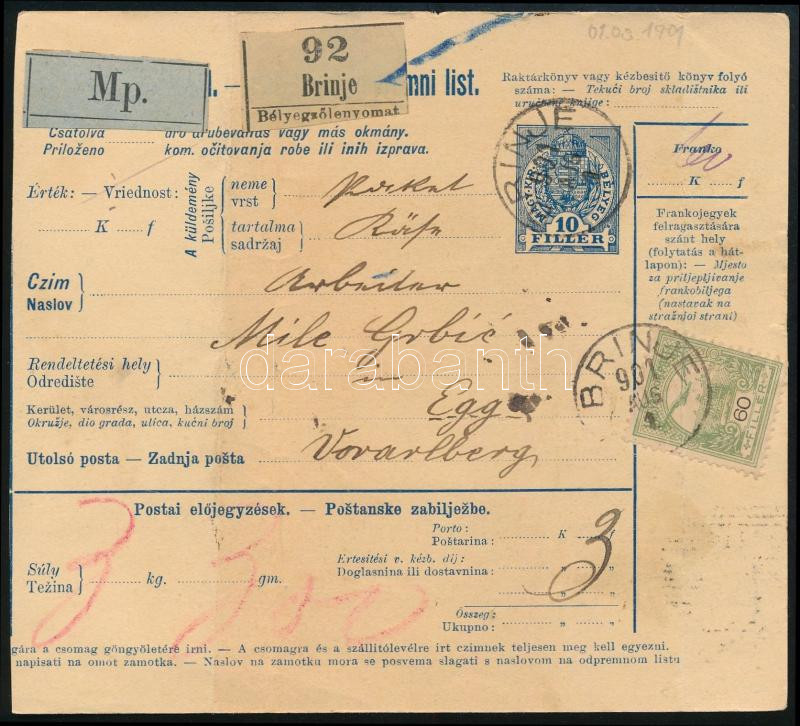 01.03.1901
92
Brinje
Bélyegzőlenyomat
Mp.
mni list.
Raktárkönyv vagy kézbesitő könyv folyó
száma: — Tekući broj skladištnika ili
uručbene knjige:
Csatolva áru árubevallás vagy más okmány.
Priloženo kom. očitovanja robe ili inih izprava.
BRINJE
MAGY. KIR. BÉLYEG
10
FILLÉR
Franko
60
K f
Érték: — Vriednost:
K f
A küldemény
Pošiljke
neme
vrst
Packet
tartalma
sadržaj
Käse
Frankojegyek
felragasztására
szánt hely
(folytatás a hát-
lapon): — Mjesto
za priljepljivanje
frankobiljega
(nastavak na
stražnjoj strani)
Czim
Naslov
Arbeiter
Mile Grbić
Rendeltetési hely
Odredište
in
Kerület, városrész, utcza, házszám
Okružje, dio grada, ulica, kućni broj
Egg
Utolsó posta — Zadnja pošta
Vorarlberg
BRINJE
901
AUG
60
FILLÉR
Postai előjegyzések. — Poštanske zabilježbe.
Súly
Težina
3 kg. 300 gm.
Porto:
Poštarina: K f
Értesitési v. kézb. díj:
Doglasnina ili dostavnina:
3
Összeg:
Ukupno:
gára a csomag göngyöletére irni. — A csomagra és a szállitólevélre irt czimnek teljesen meg kell egyezni.
napisati na omot zamotka. — Naslov na zamotku mora se posvema slagati s naslovom na odpremnom listu
darabanth